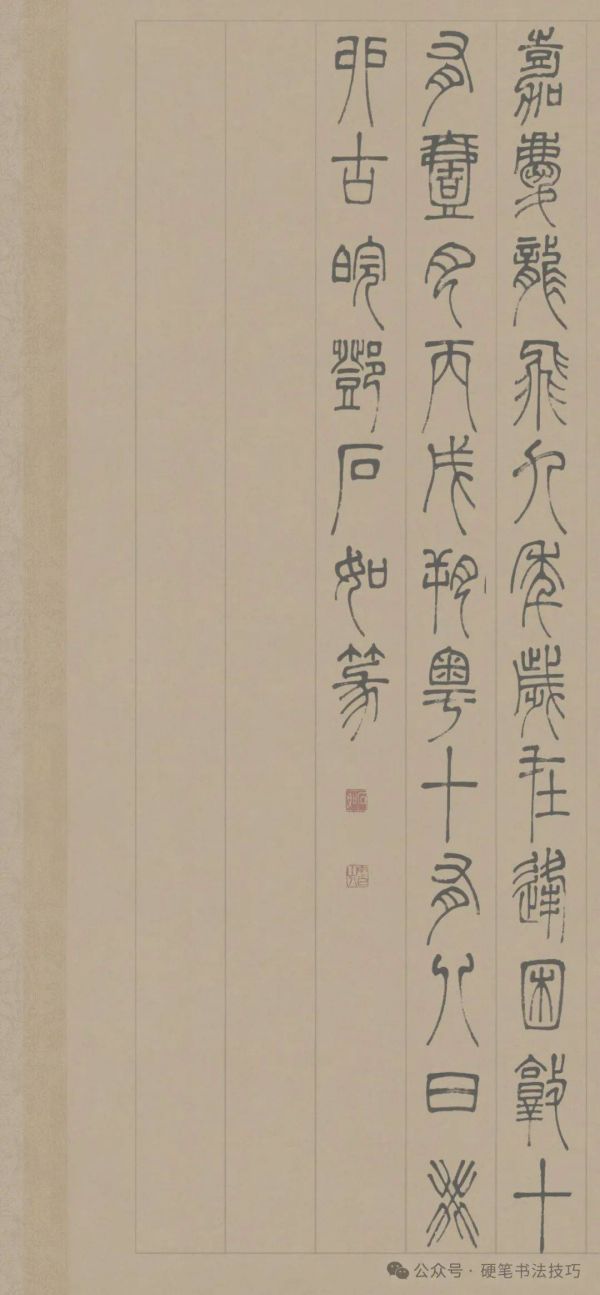 嘉慶龍飛九年歲在逢困敦十
有壹月丙戌朔粵十有八日癸
卯古皖鄧石如篆
公众号·硬笔书法技巧